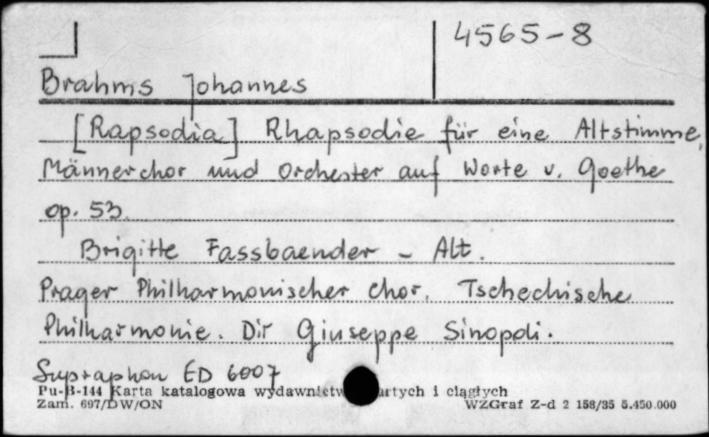 4565-8
Brahms Johannes
[Rapsodia] Rhapsodie für eine Altstimme,
Männerchor und Orchester auf Worte v. Goethe
op. 53.
Brigitte Fassbaender - Alt.
Prager Philharmonischer Chor, Tschechische
Philharmonie. Dir Giuseppe Sinopoli.
Supraphon ED 6007
Pu-B-144 Karta katalogowa i ciągłych
Zam. 697/DW/ON WZGraf Z-d 2 158/85 5.450.000